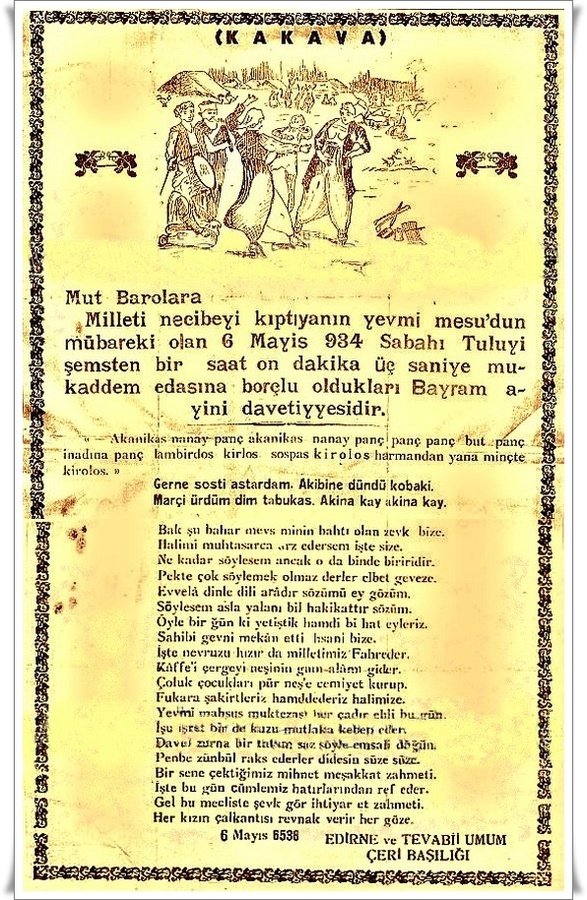 (KAKAVA)
Mut Barolara
Milleti necibeyi kıptiyanın yevmi mesu'dun
mübareki olan 6 Mayis 934 Sabahı Tuluyi
şemsten bir saat on dakika üç saniye mu-
kaddem edasına borçlu oldukları Bayram a-
yini davetiyyesidir.
« — Akanikas nanay panç akanikas nanay panç panç panç but panç
inadına panç lambirdos kirlos sospas kirolos harmandan yana minçte
kirolos. »
Gerne sosti astardam. Akibine dündü kobaki.
Marçi ürdüm dim tabukas. Akina kay akina kay.
Bak şu bahar mevs minin bahtı olan zevk bize.
Halimi muhtasarca arz edersem işte size.
Ne kadar söylesem ancak o da binde biriridir.
Pekte çok söylemek olmaz derler elbet geveze.
Evvelâ dinle dili arâdır sözümü ey gözüm.
Söylesem asla yalanı bil hakikattır sözüm.
Öyle bir ğün ki yetiştik hamdi bi hat eyleriz.
Sahibi gevni mekân etti hsani bize.
İşte nevruzu hızır da milletimiz Fahreder.
Kâffe'i çergeyi neşinin gam-alâmı gider.
Çoluk çocukları pür neş'e cemiyet kurup.
Fukara şakirtleriz hamddederiz halimize.
Yevmi mahsus muktezası her çadır ehli bu gün.
İşu işret bir de kuzu mutlaka keben eder.
Davul zurna bir takım saz şöyle emsali döğün.
Penbe zünbül raks ederler didesin süze süze.
Bir sene çektiğimiz mihnet meşakkat zahmeti.
İşte bu gün cümlemiz hatırlarından ref eder.
Gel bu mecliste şevk gör ihtiyar et zahmeti.
Her kızın çalkantısı revnak verir her göze.
6 Mayıs 6538
EDİRNE ve TEVABİİ UMUM
ÇERİ BAŞILIĞI